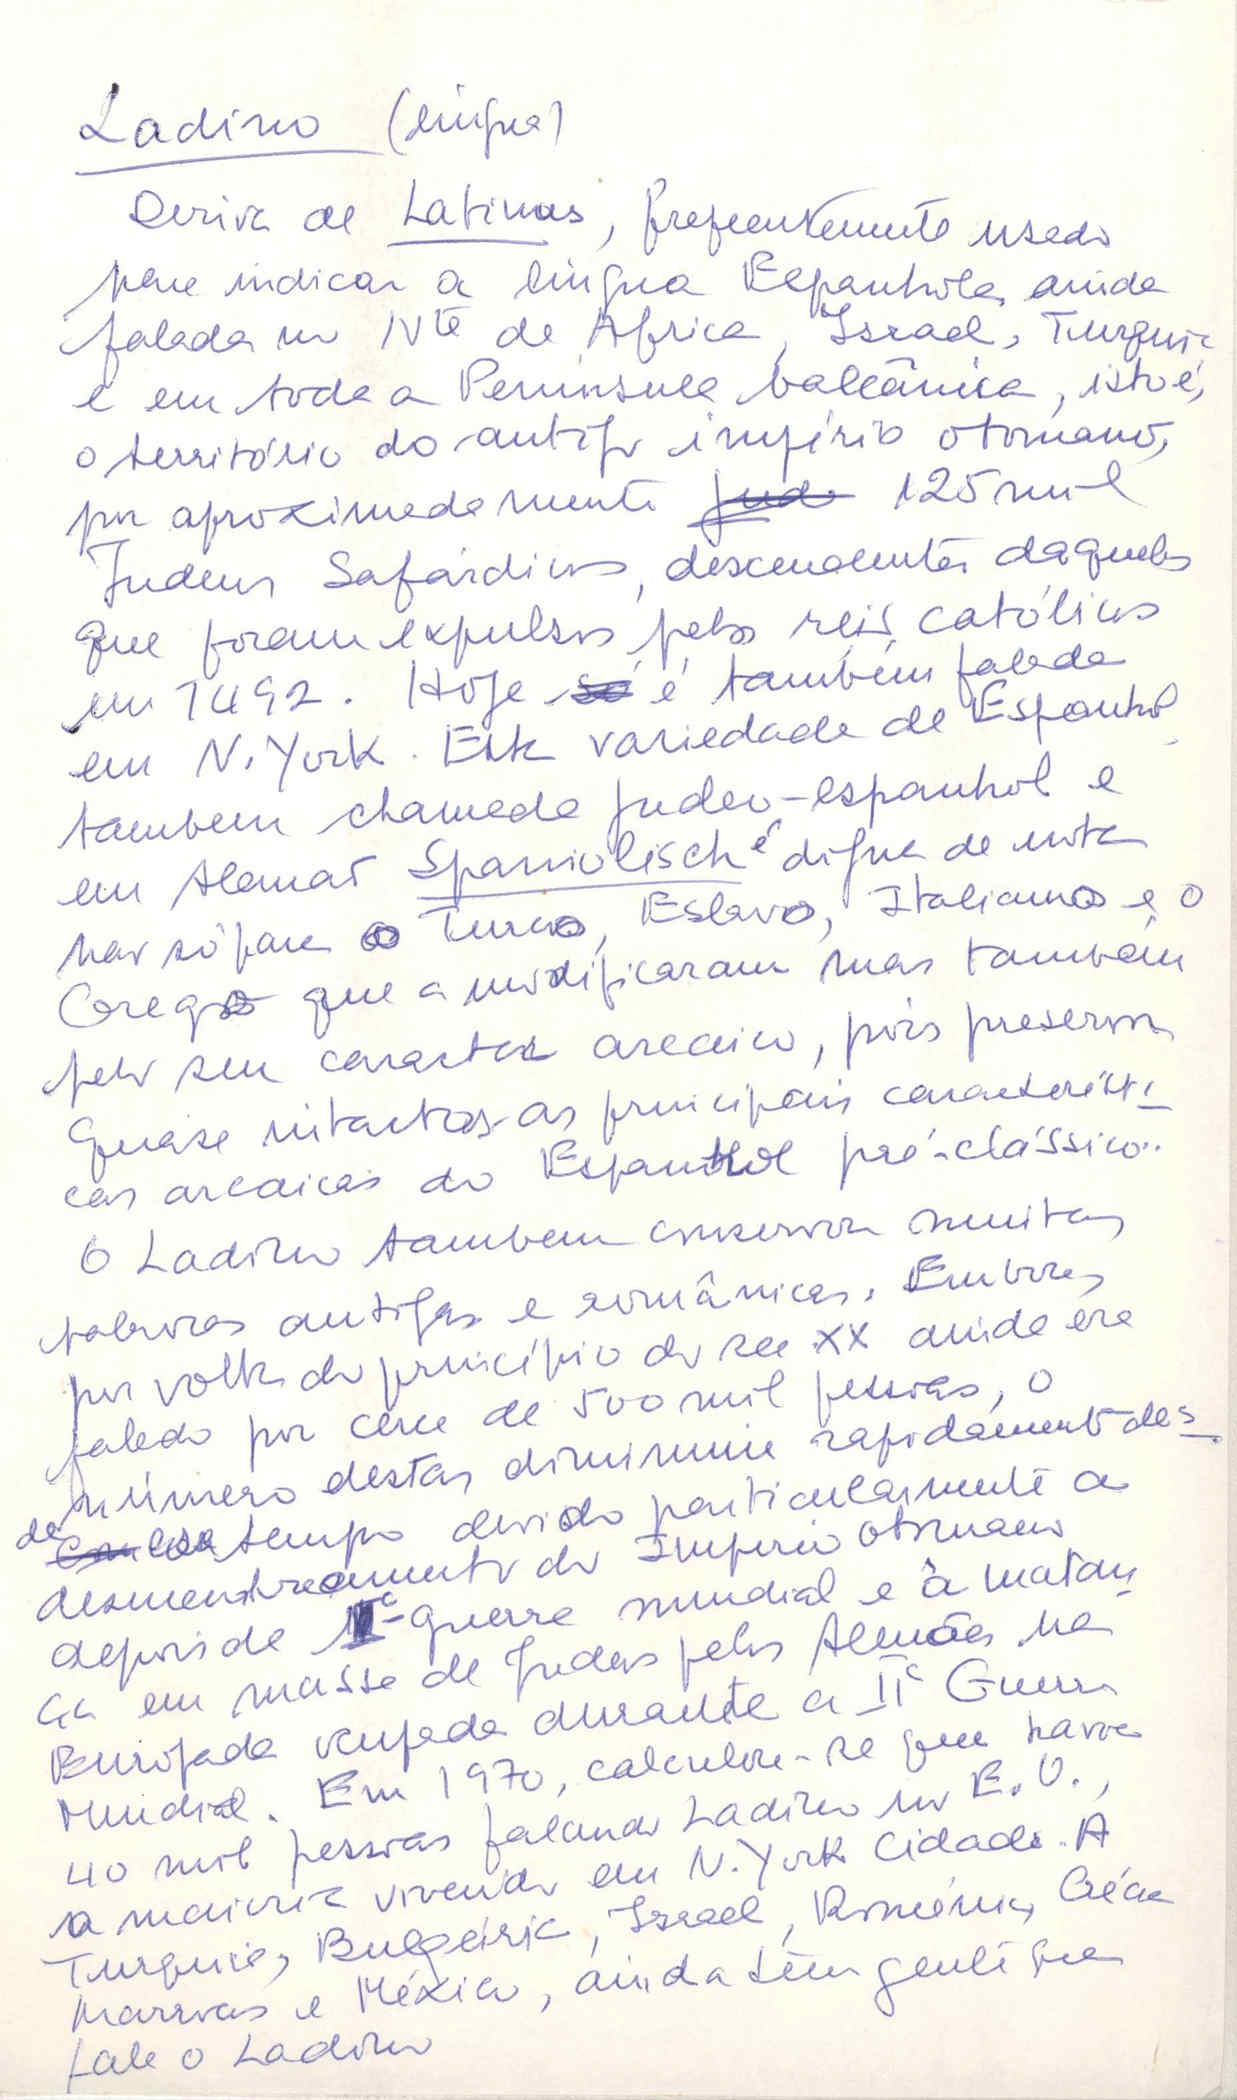 Ladino (língua)
Deriva de Latinus, frequentemente usado
para indicar a língua Espanhola, ainda
falada no Nte de Africa, Israel, Turquia
e em toda a Peninsula balcânica, isto é,
o território do antigo império otomano,
por aproximadamente Jude 125 mil
Judeus Safárdicos, descendentes daqueles
que foram expulsos pelos reis católicos
em 1492. Hoje só é também falada
em N. York. Esta variedade de Espanhol
tambem chamada Judeo-espanhol e
em Alemão Spaniolisch é digna de nota
não só para o Turco, Eslavo, Italiano e o
Grego que a modificaram mas também
pelo seu caracter arcaico, pois preserva
quase intactas as principais característi-
cas arcaicas do Espanhol pré-clássico.
O Ladino tambem conserva muitas
palavras antigas e românicas. Embora,
por volta do princípio do sec XX ainda era
falado por cerca de 500 mil pessoas, o
número destas diminuiu rapidamente des-
de tempo devido particularmente ao
desmembramento do Imperio otomano
depois da Iª guerra mundial e à matan-
ça em massa de Judeus pelos Alemães na
Europa da ocupada durante a IIª Guerra
Mundial. Em 1970, calculou-se que havia
40 mil pessoas falando Ladino nos E.U.,
a maioria vivendo em N. York Cidade. A
Turquia, Bulgária, Israel, Roménia, Grécia
Marrocos e México, ainda têm gente que
fale o Ladino